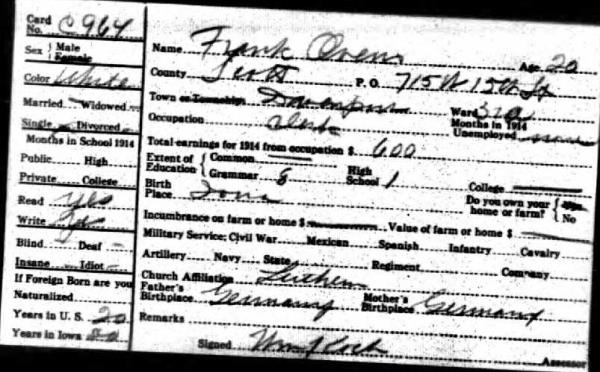 Card No. C964
Sex Male Female
Color White
Married Widowed
Single Divorced
Months in School 1914
Public High
Private College
Read Yes
Write Yes
Blind Deaf
Insane Idiot
If Foreign Born are you Naturalized
Years in U. S. 20
Years in Iowa 20
Name Frank Age 20
County Scott P. O. 715 W 15th St
Town or Township Davenport Ward 3rd
Occupation Clerk Months in 1914 Unemployed none
Total earnings for 1914 from occupation $ 600
Extent of Education Common
Grammar 8 High School 1 College
Birth Place Iowa Do you own your home or farm? Yes No
Incumbrance on farm or home $ Value of farm or home $
Military Service; Civil War Mexican Spanish Infantry Cavalry
Artillery Navy State Regiment Company
Church Affiliation
Father's Birthplace Germany Mother's Birthplace Germany
Remarks
Signed Wm J Koch Assessor